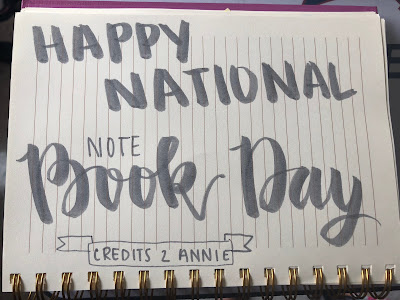 HAPPY
NATIONAL
NOTE
Book Day
CREDITS 2 ANNIE